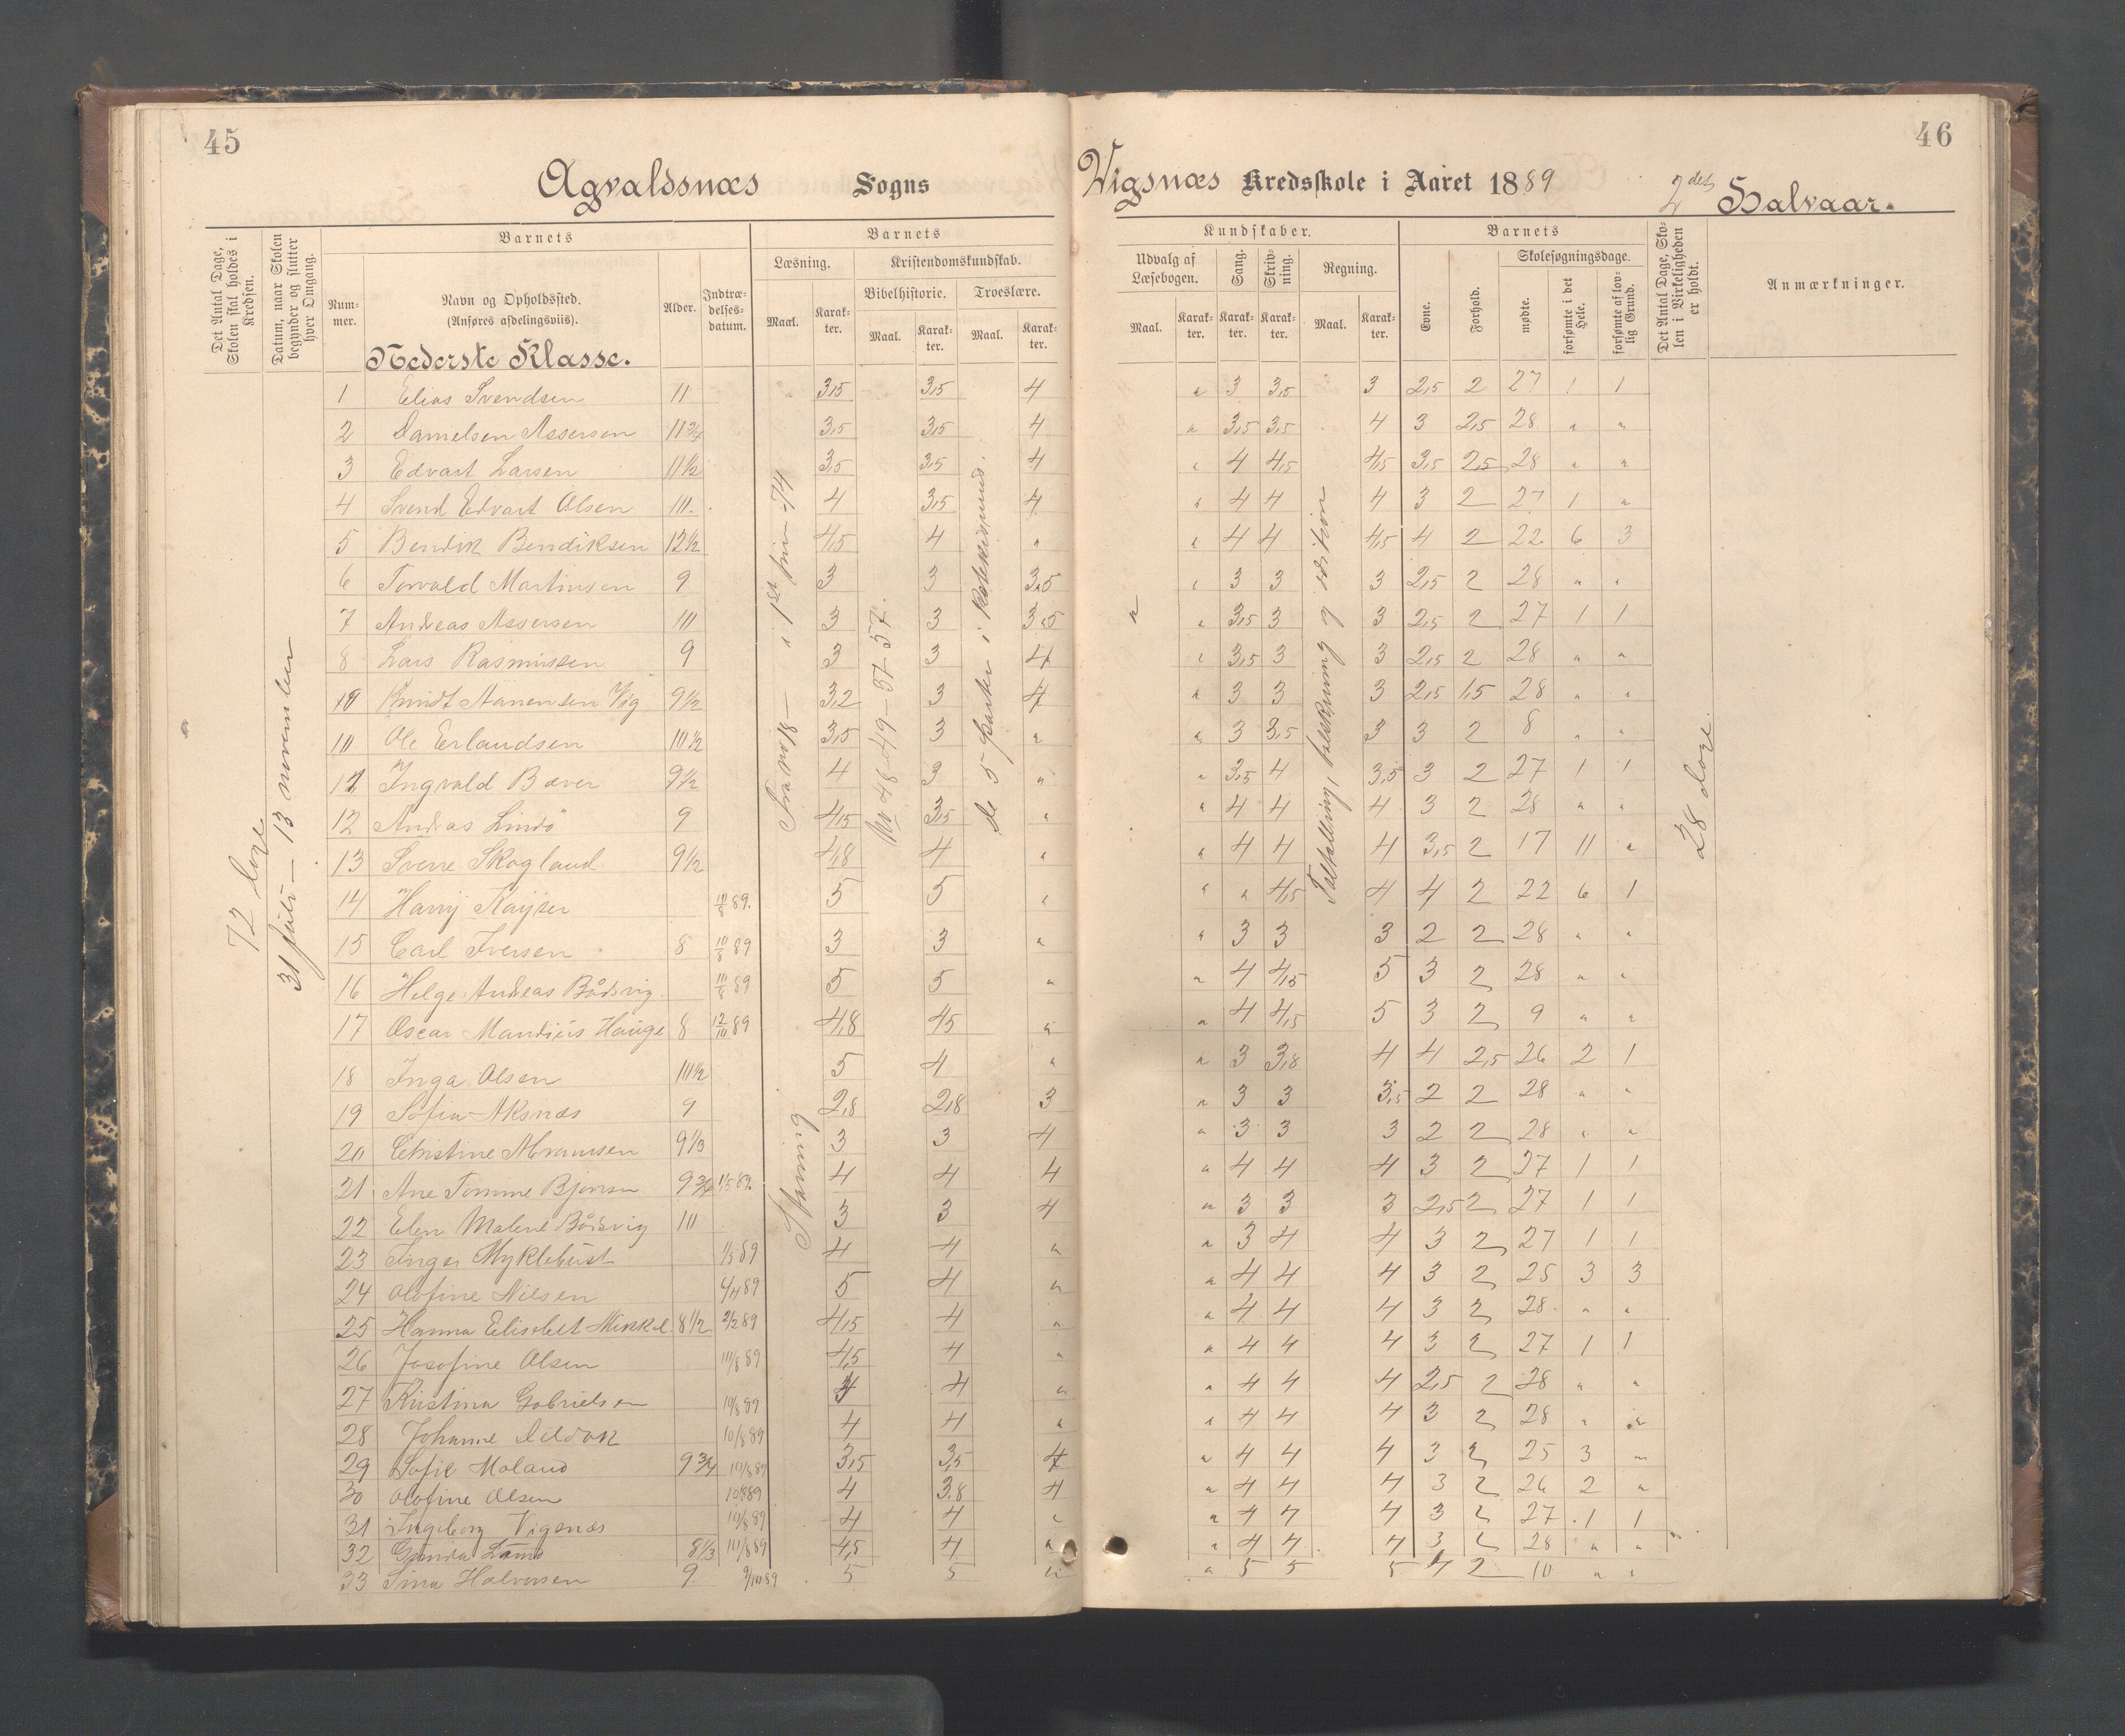 45
46
Agvaldsnæs Sogns Vigsnæs Kredsskole i Aaret 1889 2det Halvaar.
Det Antal Dage, Skolen skal holdes i Kredsen.
Datum, naar Skolen begynder og slutter hver Omgang.
Barnets
Num-mer.
Navn og Opholdssted.
(Anføres afdelingsviis).
Alder.
Indtræ-delses-datum.
Barnets
Læsning.
Maal.
Karak-ter.
Kristendomskundskab.
Bibelhistorie.
Maal.
Karak-ter.
Troeslære.
Maal.
Karak-ter.
Kundskaber.
Udvalg af Læsebogen.
Maal.
Karak-ter.
Sang.
Karak-ter.
Skriv-ning.
Karak-ter.
Regning.
Maal.
Karak-ter.
Barnets
Evne.
Forhold.
Skolesøgningsdage.
mødte.
forsømte i det Hele.
forsømte af lov-lig Grund.
Det Antal Dage, Sko-len i Virkeligheden er holdt.
Anmærkninger.
Nederste Klasse.
72 Dage
31 juli – 13 november
Stavning
No 48-49-57-57.
Taltælling, talskrivning og addition
28 Dage.
1 Elias Svendsen 11 3,5 3,5 4 " 3 3,5 3 2,5 2 27 1 1
2 Danielsen Assersen 11 3/4 3,5 3,5 4 " 3,5 3,5 4 3 2,5 28 " "
3 Edvart Larsen 11 1/2 3,5 3,5 4 " 4 4,5 4,5 3,5 2,5 28 " "
4 Svend Edvart Olsen 10 4 3,5 4 " 4 4 4 3 2 27 1 "
5 Bendik Bendiksen 12 1/2 4,5 4 " " 4 4 4,5 4 2 22 6 3
6 Torvald Martinsen 9 3 3 3,5 " 3 3 3 2,5 2 28 " "
7 Andreas Assersen 10 3 3 3,5 " 3,5 3 3 2,5 2 27 1 1
8 Lars Rasmussen 9 3 3 4 " 3,5 3 3 2,5 2 28 " "
9 Knudt Vig 9 1/2 3,2 3 4 " 3 3 3 2,5 1,5 28 " "
10 Ole Erlandsen 10 1/2 3,5 3 " " 3 3,5 3 3 2 8 " "
11 Ingvald Bæver 9 1/2 4 3 " " 3,5 4 3,5 3 2 27 1 1
12 Andras Lindö 9 4,5 3,5 " " 4 4 4 3 2 28 " "
13 Svene Skogland 9 1/2 4,8 4 " " 4 4 4 3,5 2 17 11 "
14 Harry Kayser 10/8 89. 5 5 " " " 4,5 4 4 2 22 6 1
15 Carl Iversen 8 10/8 89 3 3 " " 3 3 3 2 2 28 " "
16 Helge Andreas Bådsvig 10/8 89 5 5 " " 4 4,5 5 3 2 28 " "
17 Oscar Mandius Hauge 8 12/10 89 4,8 4,5 " " 4 4,5 5 3 2 9 " "
18 Inga Olsen 10 1/2 5 4 " " 3 3,8 4 4 2,5 26 2 1
19 Sofia Aksnæs 9 2,8 2,8 3 " 3 3 3,5 2 2 28 " "
20 Christine Abramsen 9 1/3 3 3 4 " 3 3 3 2 2 28 " "
21 Ane Tomine Bjørnsen 9 3/4 1/5 89. 4 4 4 " 4 4 4 3 2 27 1 1
22 Elen Malene Bådsvig 10 3 3 4 " 3 3 3 2,5 2 27 1 1
23 Inger Myklebust 1/5 89 4 4 " " 3 4 4 3 2 27 1 1
24 Olofine Nilsen 4/4 89 5 4 " " 4 4 4 3 2 25 3 3
25 Hanna Elisabet Mikkel. 8 1/2 2/2 89 4,5 4 " " 4 4 4 3 2 28 " "
26 Josofine Olsen 10/8 89 4,5 4 " " 4 4 4 3 2 27 1 1
27 Kristina Gabrielsen 10/8 89 4 4 " " 4 4 4 2,5 2 28 " "
28 Johanne 10/8 89 4 4 " " 4 4 4 3 2 28 " "
29 Sofie Moland 9 3/4 10/8 89 3,5 3,5 4 " 4 4 4 3 2 25 3 "
30 Olofine Olsen 10/8 89 4 3,8 4 " 4 4 4 3 2 26 2 "
31 Ingeborg Vigsnæs 10/8 89 4 4 " " 4 4 4 3 2 27 1 1
32 8 1/3 10/8 89 4,5 4 " " 4 4 4 3 2 28 " "
33 Sina Halvorsen 9 9/10 89 5 5 " " 5 5 5 4 2 10 " "